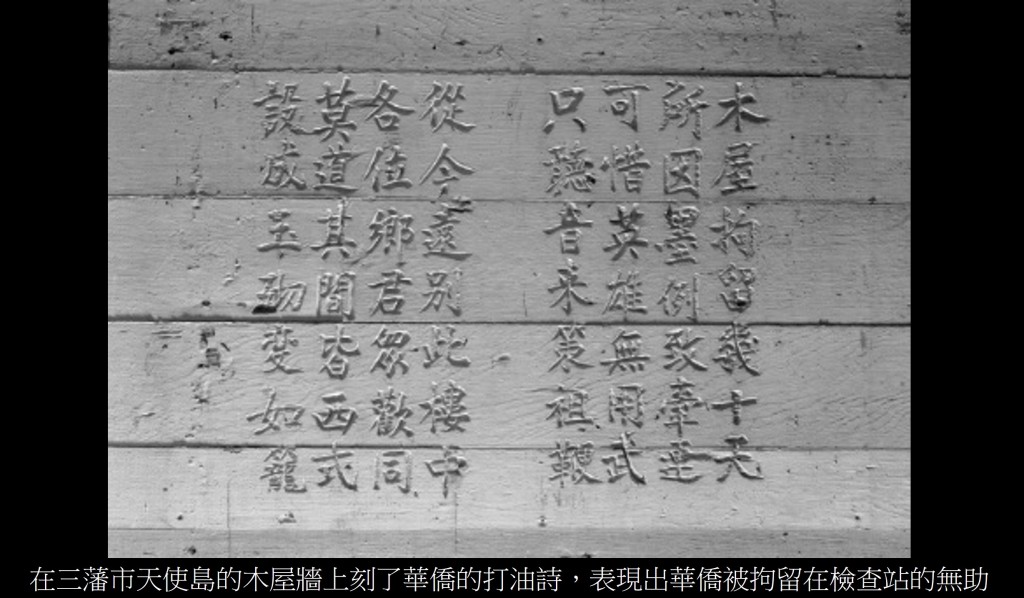 木屋拘留幾十天
所囚墨例致牽連
可惜英雄無用武
只聽音来策祖鞭
從今遠別此樓中
各位鄉君眾歡同
莫道其間皆西式
設成玉砌變如籠
在三藩市天使島的木屋牆上刻了華僑的打油詩，表現出華僑被拘留在檢查站的無助